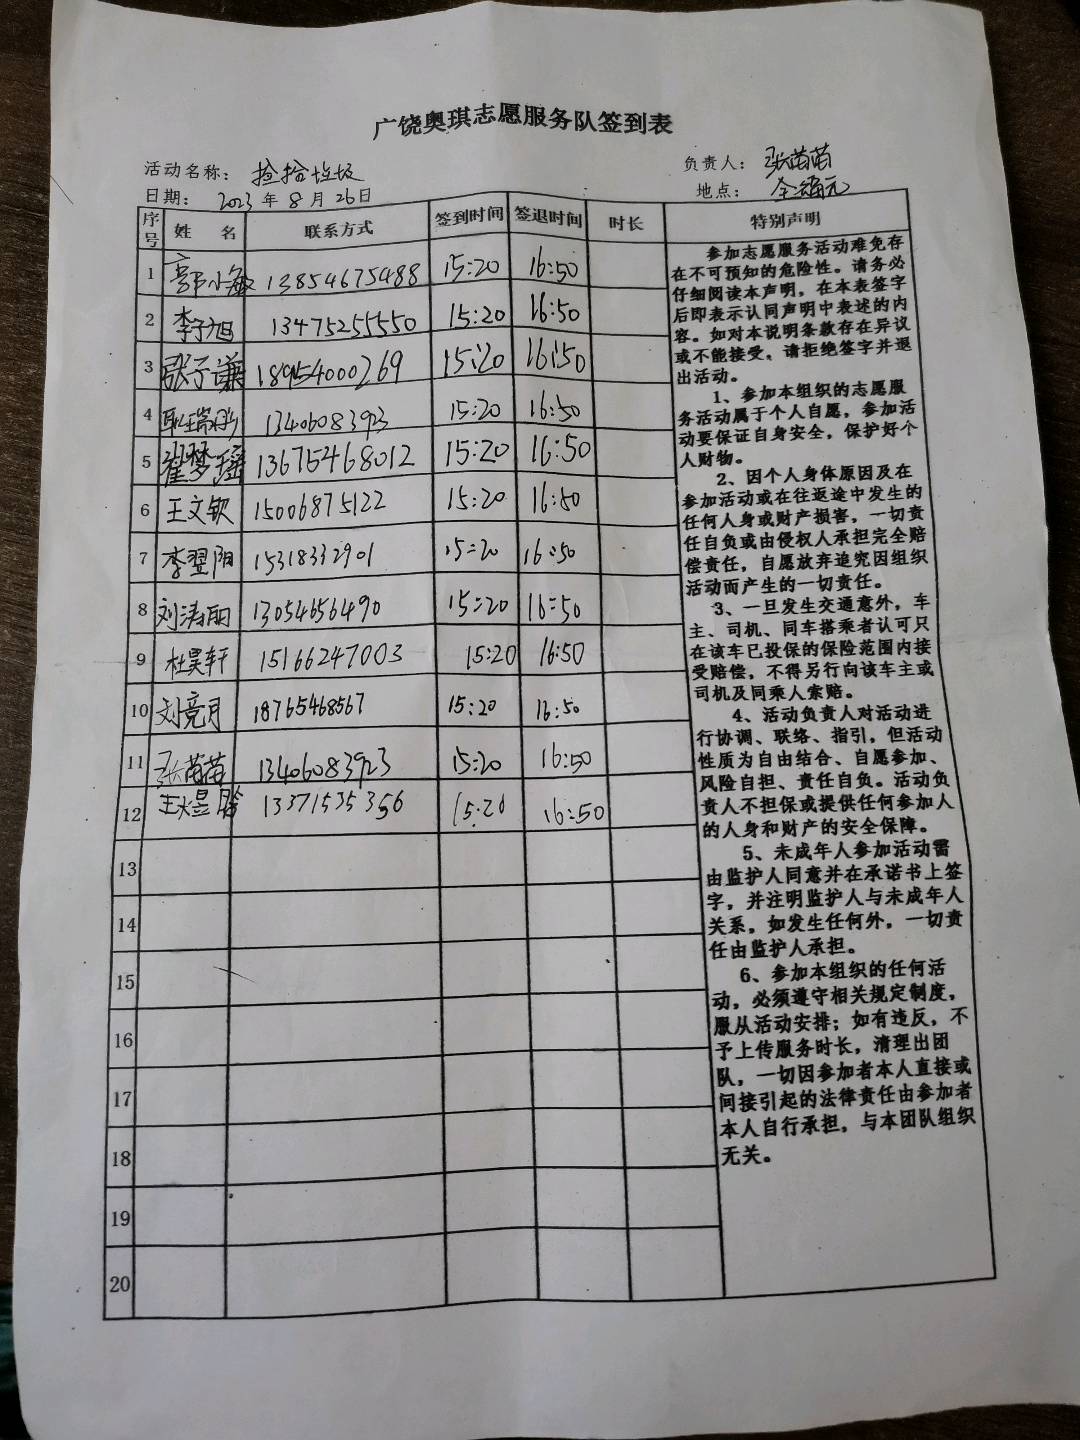 广饶奥琪志愿服务队签到表
活动名称: 捡拾垃圾 负责人: 张苗苗
日期: 2023 年 8 月 26 日 地点:
序号 姓 名 联系方式 签到时间 签退时间 时长 特别声明
1 郭小敏 13854675488 15:20 16:50
2 李子旭 13475255550 15:20 16:50
3 张子谦 18954000269 15:20 16:50
4 13406083923 15:20 16:50
5 翟梦瑶 13675468012 15:20 16:50
6 王文钦 15006875122 15:20 16:50
7 李翌阳 15318332901 15:20 16:50
8 刘涛丽 13054656490 15:20 16:50
9 杜昊轩 15166247003 15:20 16:50
10 刘亮月 18765468567 15:20 16:50
11 张苗苗 13406083923 15:20 16:50
12 王煜晗 13371535356 15:20 16:50
13
14
15
16
17
18
19
20
参加志愿服务活动难免存
在不可预知的危险性。请务必
仔细阅读本声明，在本表签字
后即表示认同声明中表述的内
容。如对本说明条款存在异议
或不能接受，请拒绝签字并退
出活动。
1、参加本组织的志愿服
务活动属于个人自愿，参加活
动要保证自身安全，保护好个
人财物。
2、因个人身体原因及在
参加活动或在往返途中发生的
任何人身或财产损害，一切责
任自负或由侵权人承担完全赔
偿责任，自愿放弃追究因组织
活动而产生的一切责任。
3、一旦发生交通意外，车
主、司机、同车搭乘者认可只
在该车已投保的保险范围内接
受赔偿，不得另行向该车主或
司机及同乘人索赔。
4、活动负责人对活动进
行协调、联络、指引，但活动
性质为自由结合、自愿参加、
风险自担、责任自负。活动负
责人不担保或提供任何参加人
的人身和财产的安全保障。
5、未成年人参加活动需
由监护人同意并在承诺书上签
字，并注明监护人与未成年人
关系，如发生任何外，一切责
任由监护人承担。
6、参加本组织的任何活
动，必须遵守相关规定制度，
服从活动安排；如有违反，不
予上传服务时长，清理出团
队，一切因参加者本人直接或
间接引起的法律责任由参加者
本人自行承担，与本团队组织
无关。